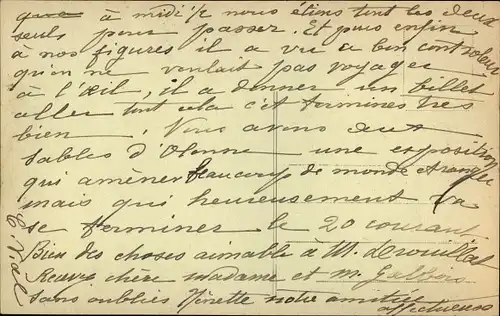 à midi ½ nous étions tout les deux
seuls pour passer. Et puis enfin
à nos figures il a vu ce bon controleur
qu'on ne voulait pas voyager
à l'œil, il a donner un billet
aller tout cela c'et termines tres
bien. Nous avons aux
Sables d'Olonne une exposition
qui amèner beaucoup de monde étranger
mais qui heureusement va
se terminer le 20 courant.
Bien des choses aimable à M.
Recevez chère madame et M. Galbois
sans oublies Ninette notre amitie
affectueuse
E Viel